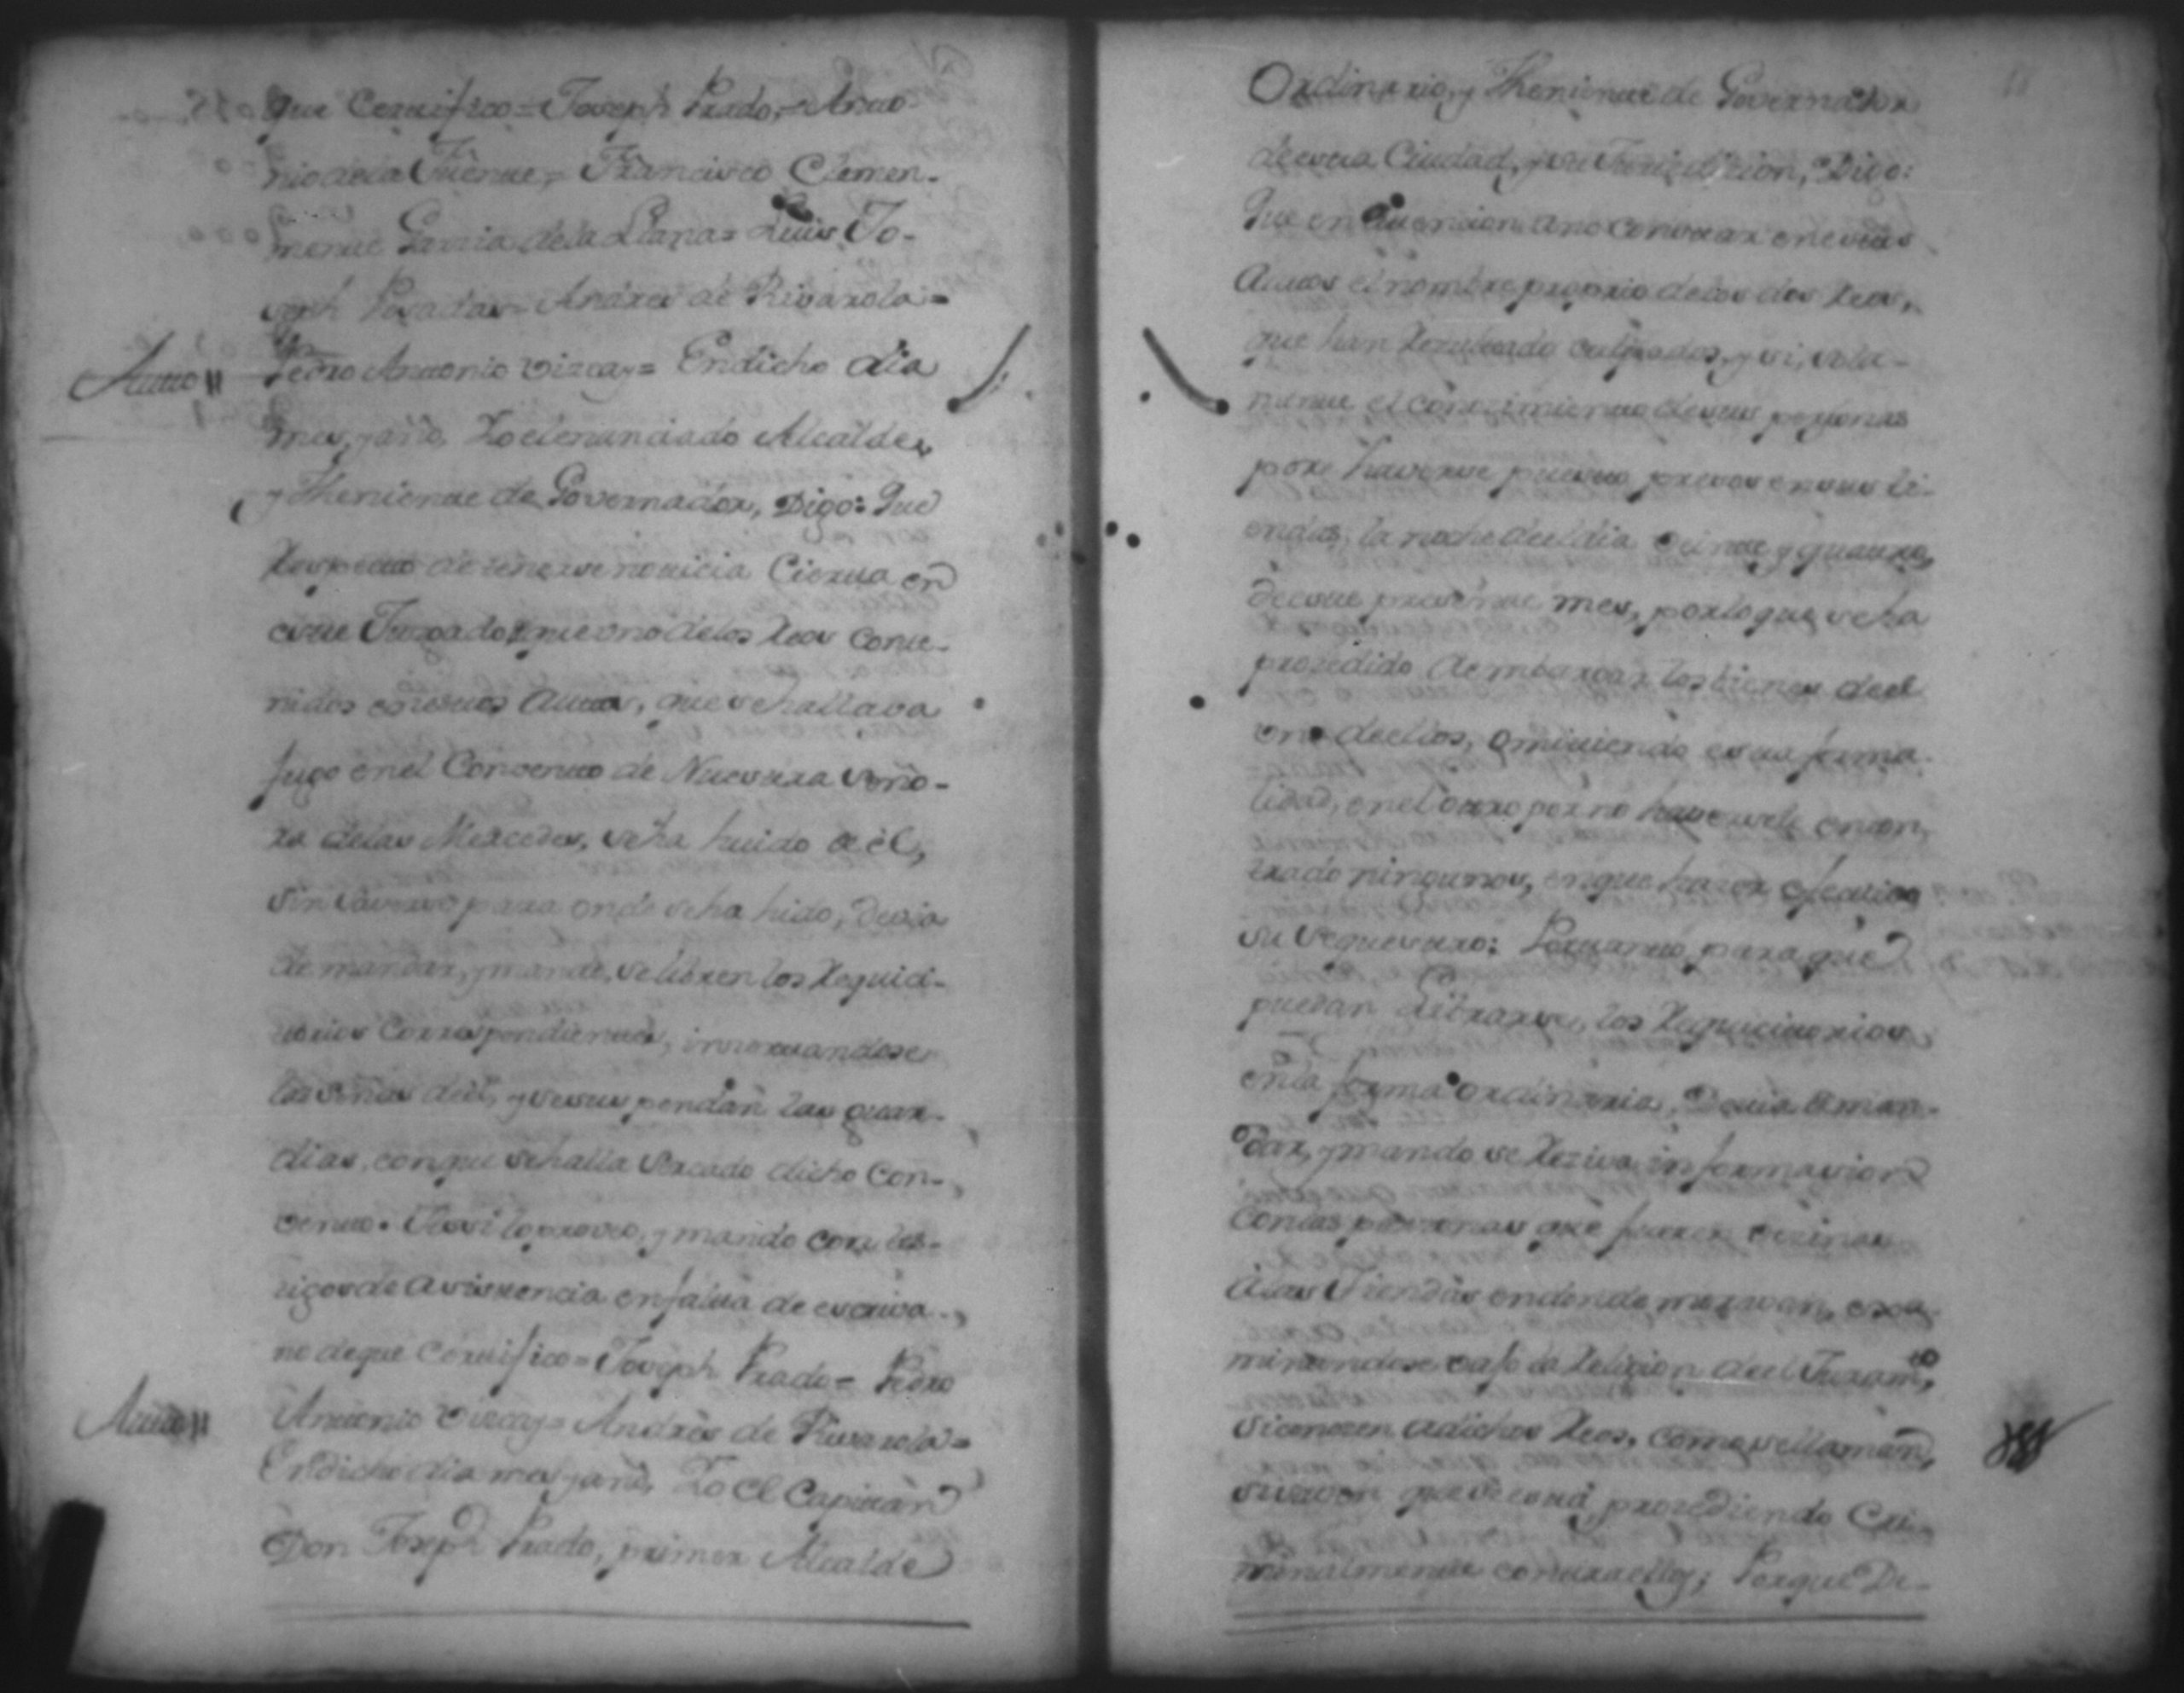 que Certifico = Joseph Prado, = Anto
nio de la Fuente, = Francisco Clemen-
mente Garcia de la Llana = Luis Jo-
seph Posadas = Andres de Rivarola =
Autto || Pedro Antonio Vizcay = En dicho dia
mes, y año, Yo el enunciado Alcalde,
y Theniente de Governador, Digo: Que
Respecto de tenerse noticia Cierta en
este Jusgado, que uno de los Reos conte-
nidos en estos Autos, que se hallava
fugo en el Convento de Nuestra Seño-
ra de las Mercedes, se ha huido de èl,
sin saverse para onde se ha hido, Devia
de mandar, y mandè, se libren los Requici-
torios Correspondientes, incertandose
las señas de èl, y se suspendan las guar-
dias, con que se halla sercado dicho Con-
vento. Assi lo proveo, y mando con tes-
tigos de asistencia en falta de escriva-
no de que Certifico = Joseph Prado = Pedro
Autto || Antonio Vizcay = Andrès de Rivarola =
En dicho dia mes, y año, Yo el Capitan
Don Joseph Prado, primer Alcalde
Ordinario, y Theniente de Governador
de esta Ciudad, y su Jurisdicion, Digo:
Que en atencion a no constar en estos
Autos el nombre proprio de los dos Reos,
que han Rezultado culpados, y si, sola-
mente el conozimiento de sus personas
por haverse puesto presos en sus ti-
endas, la noche de el dia veinte y quatro,
de este presente mes, por lo que se ha
prozedido a embargar los bienes de el
uno de ellos, omitiendo esta forma-
lidad, en el otro por no haversele encon-
trado ningunos, en que hazer efectivo
su sequestro: Portanto, para que
puedan Librarse, los Requicitorios
en la forma ordinaria, Devia de man-
dar, y mando se Reziva informasion
con las personas que fueren vezinas
a las Tiendas en donde moravan, exa-
minandose bajo la Religion de el Juram.to,
si conosen a dichos Reos, como se llaman,
que se està prozediendo Cri-
minalmente contra ellos; Porque De-